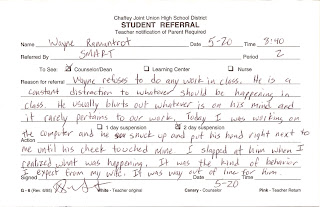 Chaffey Joint Union High School District
STUDENT REFERRAL
Teacher notification of Parent Required
Name Wayne Date 5-20 Time 8:40
Referred By SMART Period 2
To: ☑ Counselor/Dean ☐ Learning Center ☐ Nurse
Reason for referral Wayne refuses to do any work in class. He is a
constant distraction to whatever should be happening in
class. He usually blurts out whatever is on his mind and
it rarely pertains to our work. Today I was working on
☐ 1 day suspension ☑ 2 day suspension
the computer and he snuck up and put his head right next to
Action
me until his cheek touched mine. I slapped at him when I
realized what was happening. It was the kind of behavior
I expect from my wife. It was way out of line for him.
Signed Date 5-20
G-8 (Rev. 8/86) White - Teacher original Canary - Counselor Pink - Teacher Return